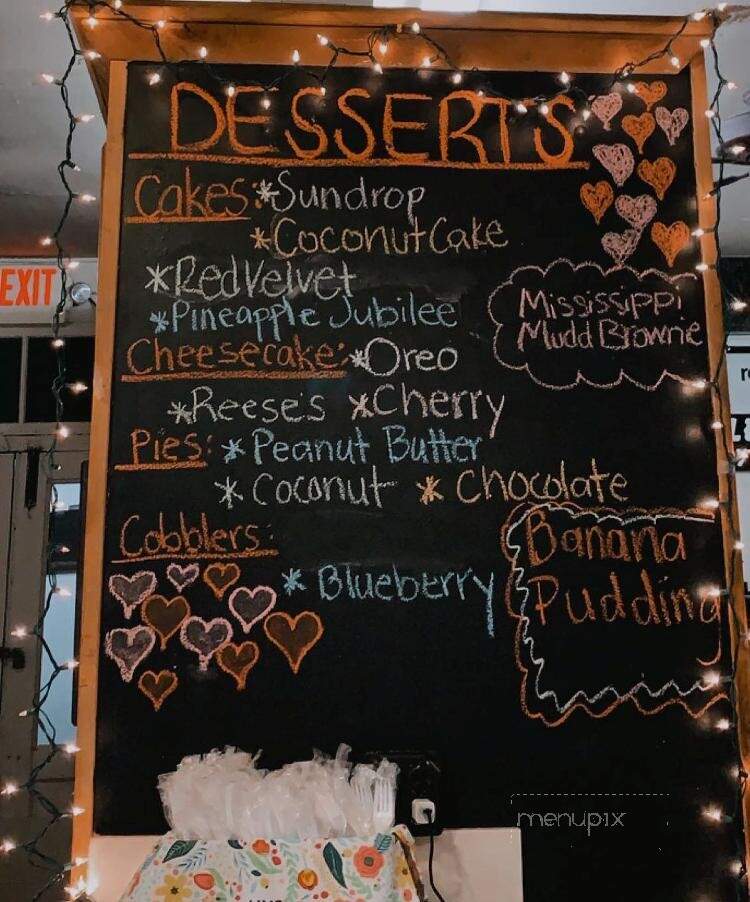 DESSERTS
Cakes: *Sundrop
*Coconut Cake
*Red Velvet
*Pineapple Jubilee
Mississippi
Mudd Brownie
Cheesecake: *Oreo
*Reese's *Cherry
Pies: *Peanut Butter
*Coconut *Chocolate
Cobblers:
*Blueberry
Banana
Pudding
EXIT
menupix